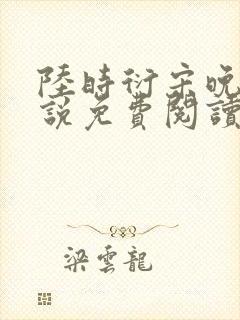 陸時衍宋晚
說免費閱讀
梁雲龍